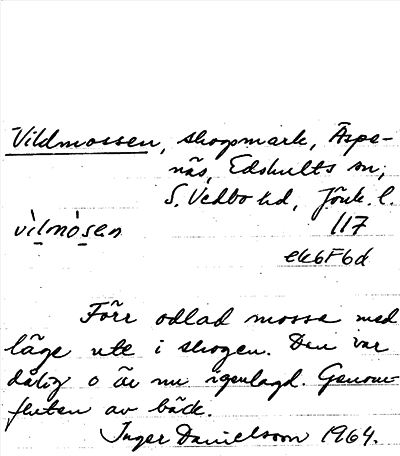 Vildmossen, skogsmark, Äspe-
näs, Edshults sn,
S. Vedbo hd, Jönk. l.
vìlmòsen 117
ek6F6d
Förr odlad mosse med
läge ute i skogen. Den var
dålig o är nu igenlagd. Genom-
fluten av bäck.
Inger Danielsson 1964.